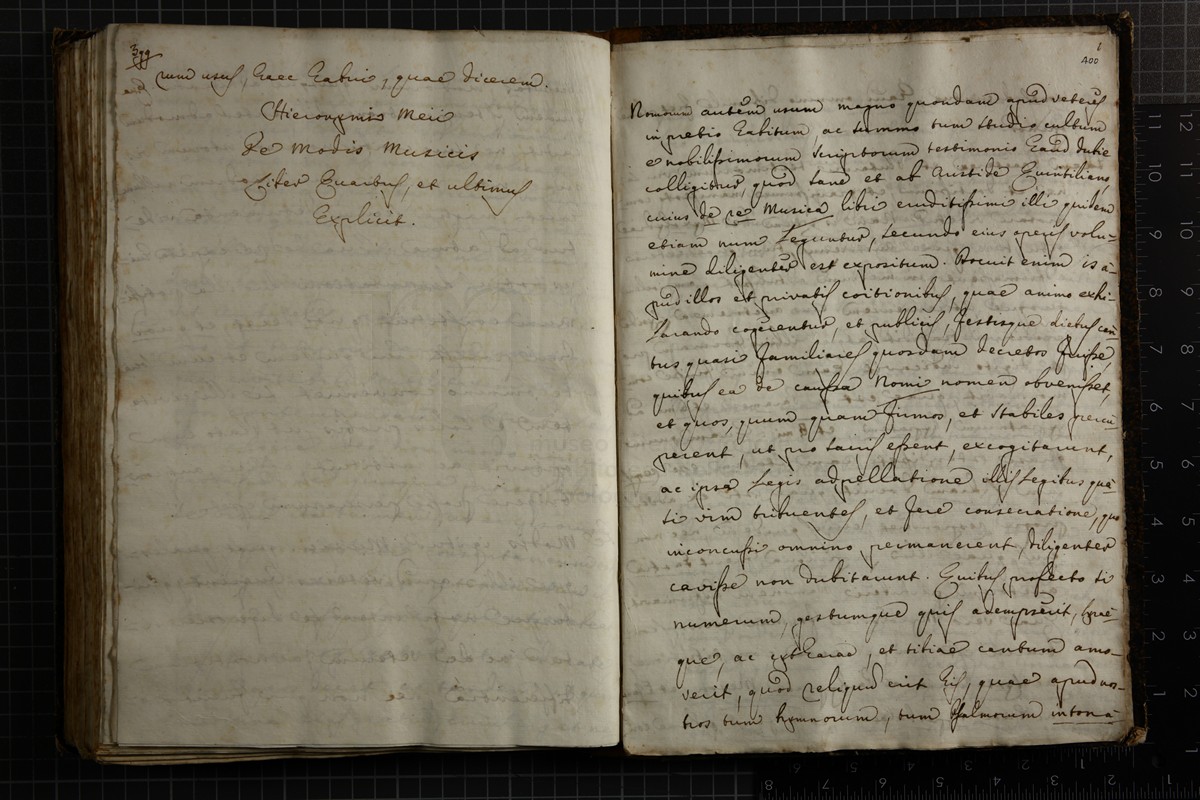 399
rum usus, haec habui, quae dicerem.
Hieronymis Meii
De Modis Musicis
Liber Quartus, et ultimus
Explicit.
1
400
Nomorum autem usum magno quondam apud veteres
in pretio habitum, ac summo tum studio cultum
e nobilissimorum scriptorum testimonio haud dubie
colligitur, quod sane et ab Aristide Quintiliano,
cuius de re Musica libri eruditissimi illi quidem
etiam num leguntur, secundo eius operis volu-
mine diligenter est expositum. Docuit enim is a-
pud illos et privatis coitionibus, quae animo exhi-
larando cogerentur, et publicis, festisque diebus can-
tus quasi familiares quosdam decretos fuisse,
quibus ea de caussa Nomi nomen obvenisset,
et quos, quum quam firmos, et stabiles percu-
perent, ut pro sacris essent, excogitarunt,
ac ipsa Legis adpellatione illis Legibus qua-
si vim tribuentes, et fere consecratione, quo
inconcussi omnino permanerent diligenter
cavisse non dubitarunt. Quibus profecto si
numerum, gestumque quis adempserit,
que, ac cytharae, et tibiae cantum amo-
verit, quod reliquum erit his, quae apud nos-
tros tum hymnorum, tum Psalmorum intona-